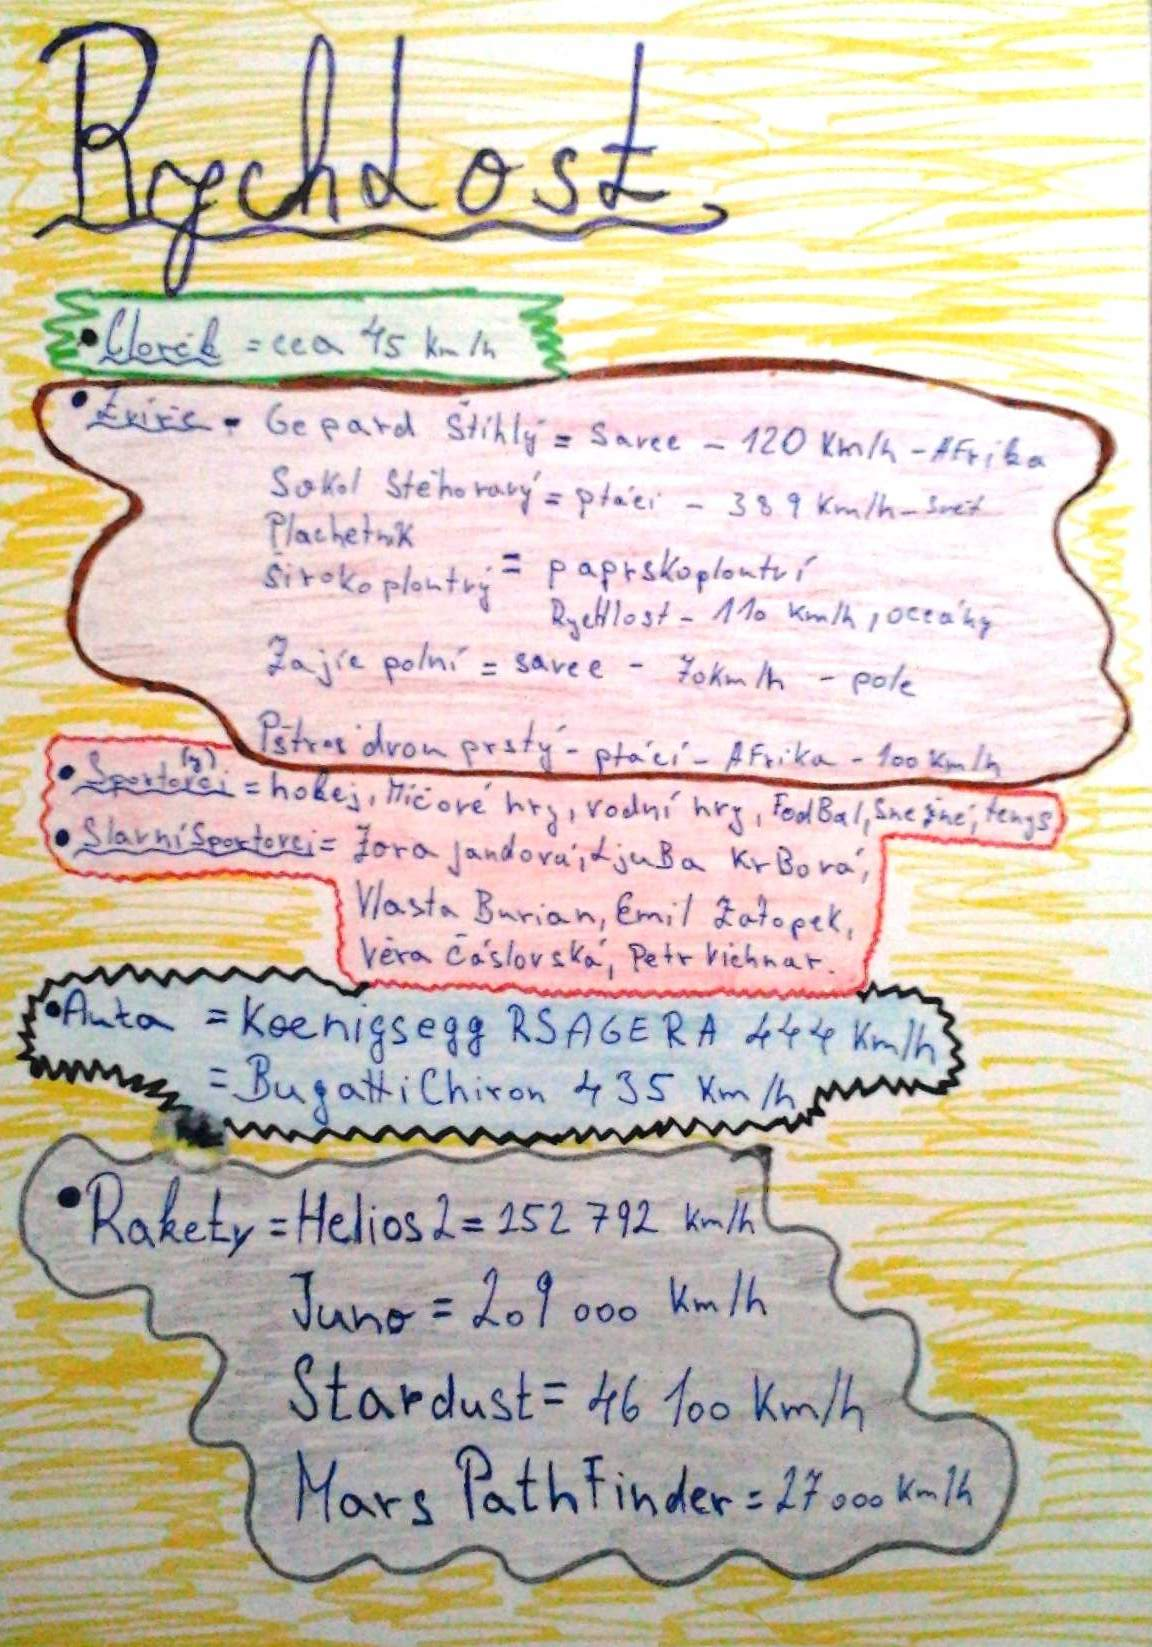 Rychlost
• Člověk = cca 45 km/h
• Zvíře - Gepard Štíhlý = Savec - 120 Km/h - AFrika
Sokol Stěhovavý = ptáci - 389 Km/h - Svět
Plachetník
širokoploutvý = paprskoploutví
Rychlost - 110 km/h, oceány
Zajíc polní = savec - 70km/h - pole
Pštros dvou prstý - ptáci - AFrika - 100 km/h
• Sportovci (y) = hokej, Míčové hry, vodní hry, FodBal, Sněžné, tenys
• Slavní Sportovci = Zora jandová, LjuBa KrBová,
Vlasta Burian, Emil Zátopek,
Věra Čáslovská, Petr Vichnar.
• Auta = Koenigsegg RSAGERA 444 Km/h
= Bugatti Chiron 435 Km/h
• Rakety = Helios 2 = 252 792 km/h
Juno = 209 000 Km/h
Stardust = 46 100 Km/h
Mars PathFinder = 27 000 Km/h